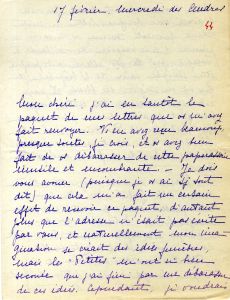 17 février, mercredi des Cendres
44
Mon chéri, j'ai eu tantôt le
paquet de mes lettres que
fait renvoyer.
presque toutes, je crois, et avez bien
fait de débarasser de cette paperasserie
inutile et encombrante. — Je dois
vous avouer (puisque je ai tout
dit) que cela m'a fait un certain
effet de recevoir ce paquet, d'autant
plus que l'adresse n'était pas écrite
par vous, et naturellement mon ima-
gination se créait des idées funèbres,
mais les Petites m'ont si bien
secouée que j'ai fini par me débarasser
de ces idées. Cependant, je voudrais